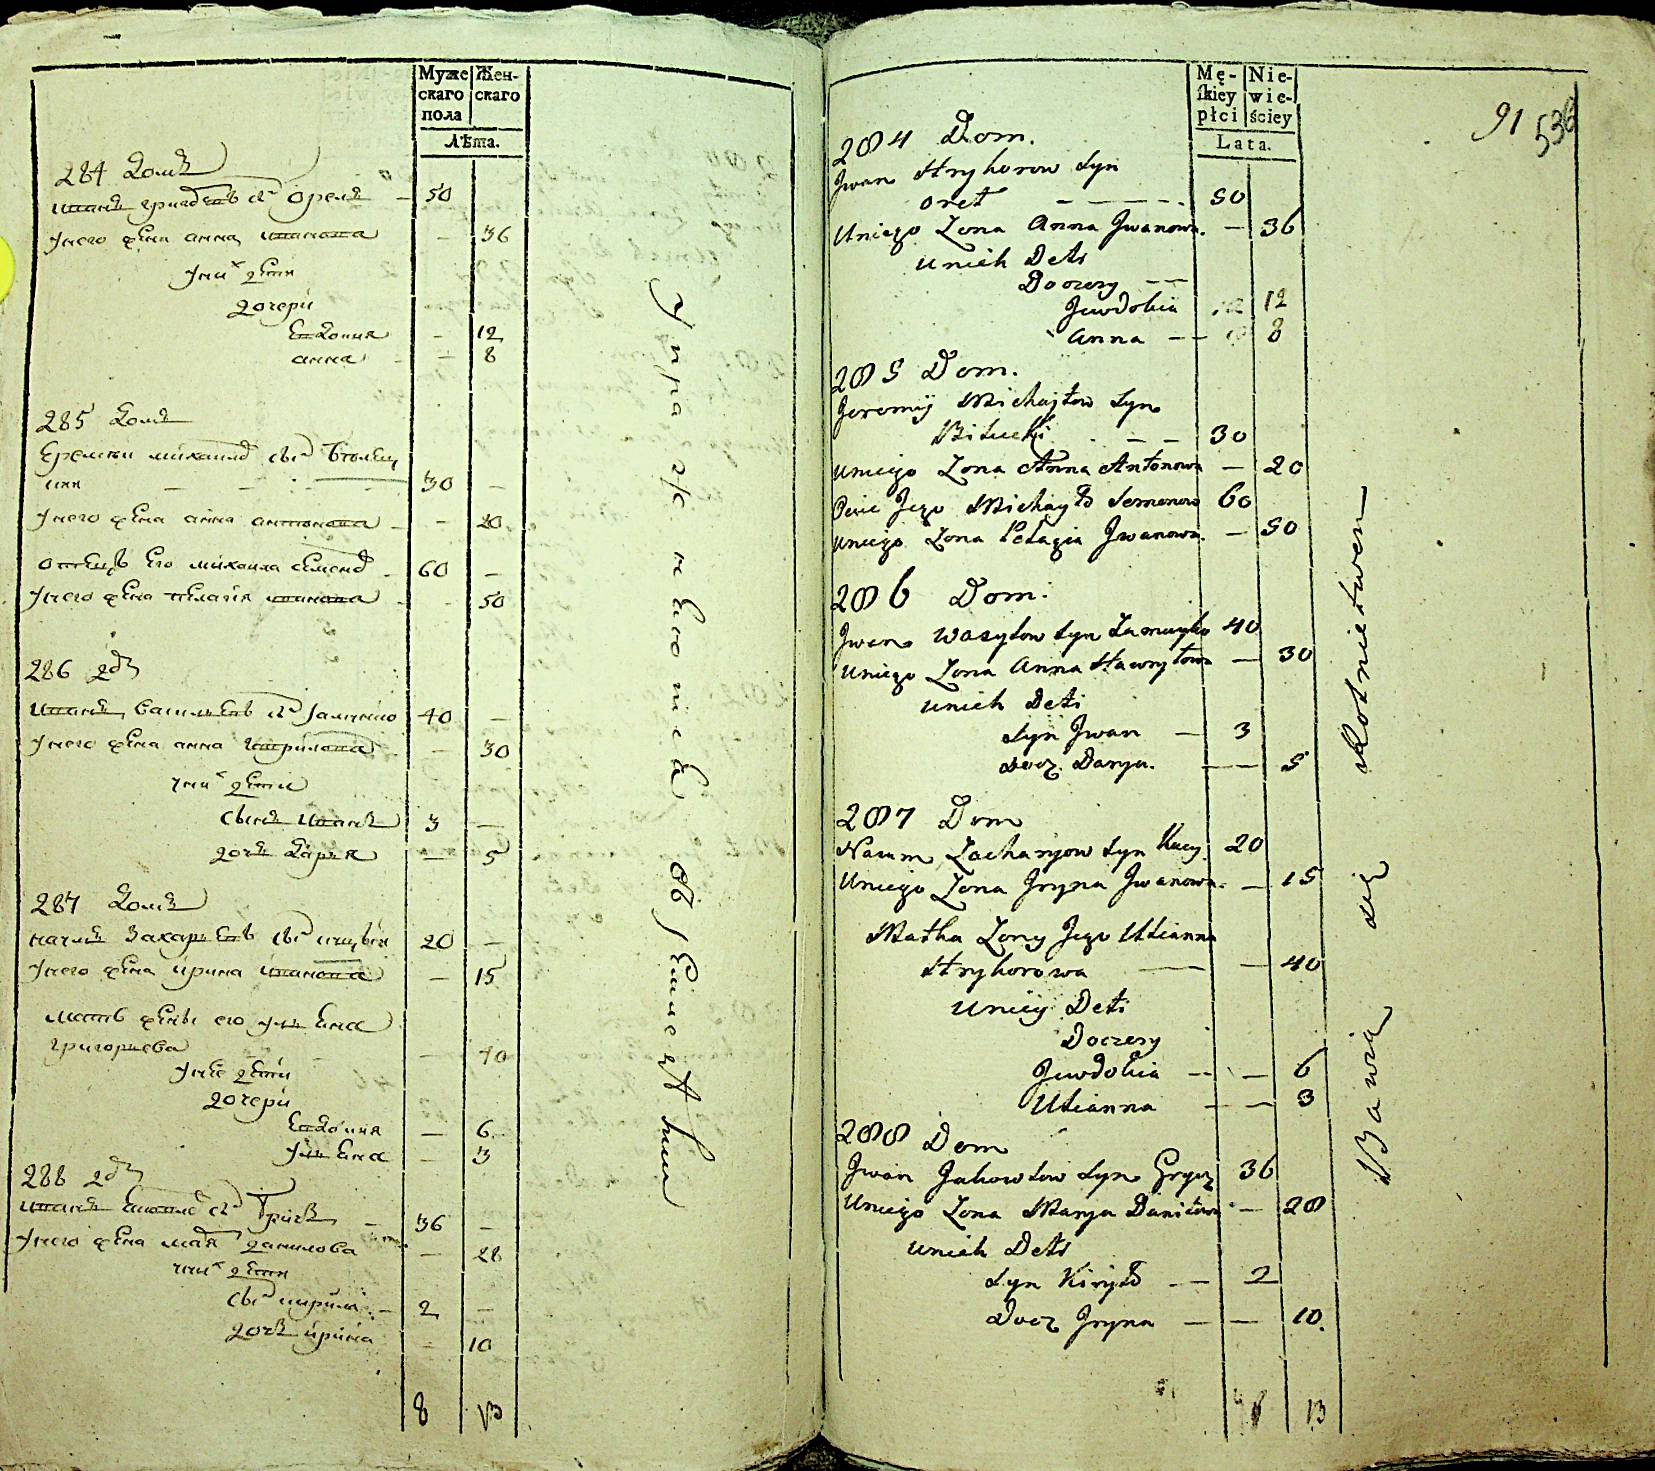 Муже
скаго
пола
Жен-
скаго
Лѣта.
284 домъ
иванъ григоревъ сн орелъ — 50
унего жена анна иванова — 36
унихъ дети
дочери
Евдокия — 12
анна — 8
285 домъ
Еремѣй михайловъ снъ
30 —
унего жена анна антонова — 20
отецъ его михаила семенов 60 —
унего жена пелагія иванова — 50
286 дом
иванъ василевъ снъ 40 —
унего жена анна гаврилова — 30
унихъ дети
сынъ иванъ 3 —
дочь дарья — 5
287 домъ
наумъ Захарьевъ снъ 20 —
унего жена ирина иванова — 15
мать жены его ульяна
григорьева — 40
унее дети
дочери
Евдокия — 6
ульяна — 3
288 дом
иванъ снъ Грицъ — 36 —
унего жена марья данилова — 28
унихъ дети
снъ кирила — 2 —
дочь ирина — 10
8 13
Упражнением
обѣ
Mę-
skiey
płci
Nie-
wie-
ściey
Lata.
91 536
284 Dom.
Jwan Hryhorow Syn
Oreł - - - - - 50
Uniego Zona Anna Jwanowa. — 36
Unich Deti
Doczery — —
Jewdokia 12
Anna — — 8
285 Dom.
Jeremij Michajłow Syn
. — — 30
Uniego Zona Anna Antonowa — 20
Jego Michayło Semenow 60
Uniego Zona Pełagia Jwanowa. — 50
286 Dom.
Jwan Wasylow Syn 40
Uniego Zona Anna Hawryłowa — 30
Unich Deti
Syn Jwan — 3
Docz. Darya. — — 5
287 Dom
Naum Zacharyow Syn Kucy. 20
Uniego Zona Jryna Jwanowa. — 15
Matka Zony Jego Ulianna
Hryhorowa — — 40
Uniey Deti
Doczery
Jewdokia — — 6
Ulianna — — 3
288 Dom
Jwan Jakowlow Syn Gryc 36
Uniego Zona Marya Daniłowa — 28
Unich Deti
Syn Kiryło — — 2
Docz Jryna — — 10.
13
Bawią się Rolnictwem